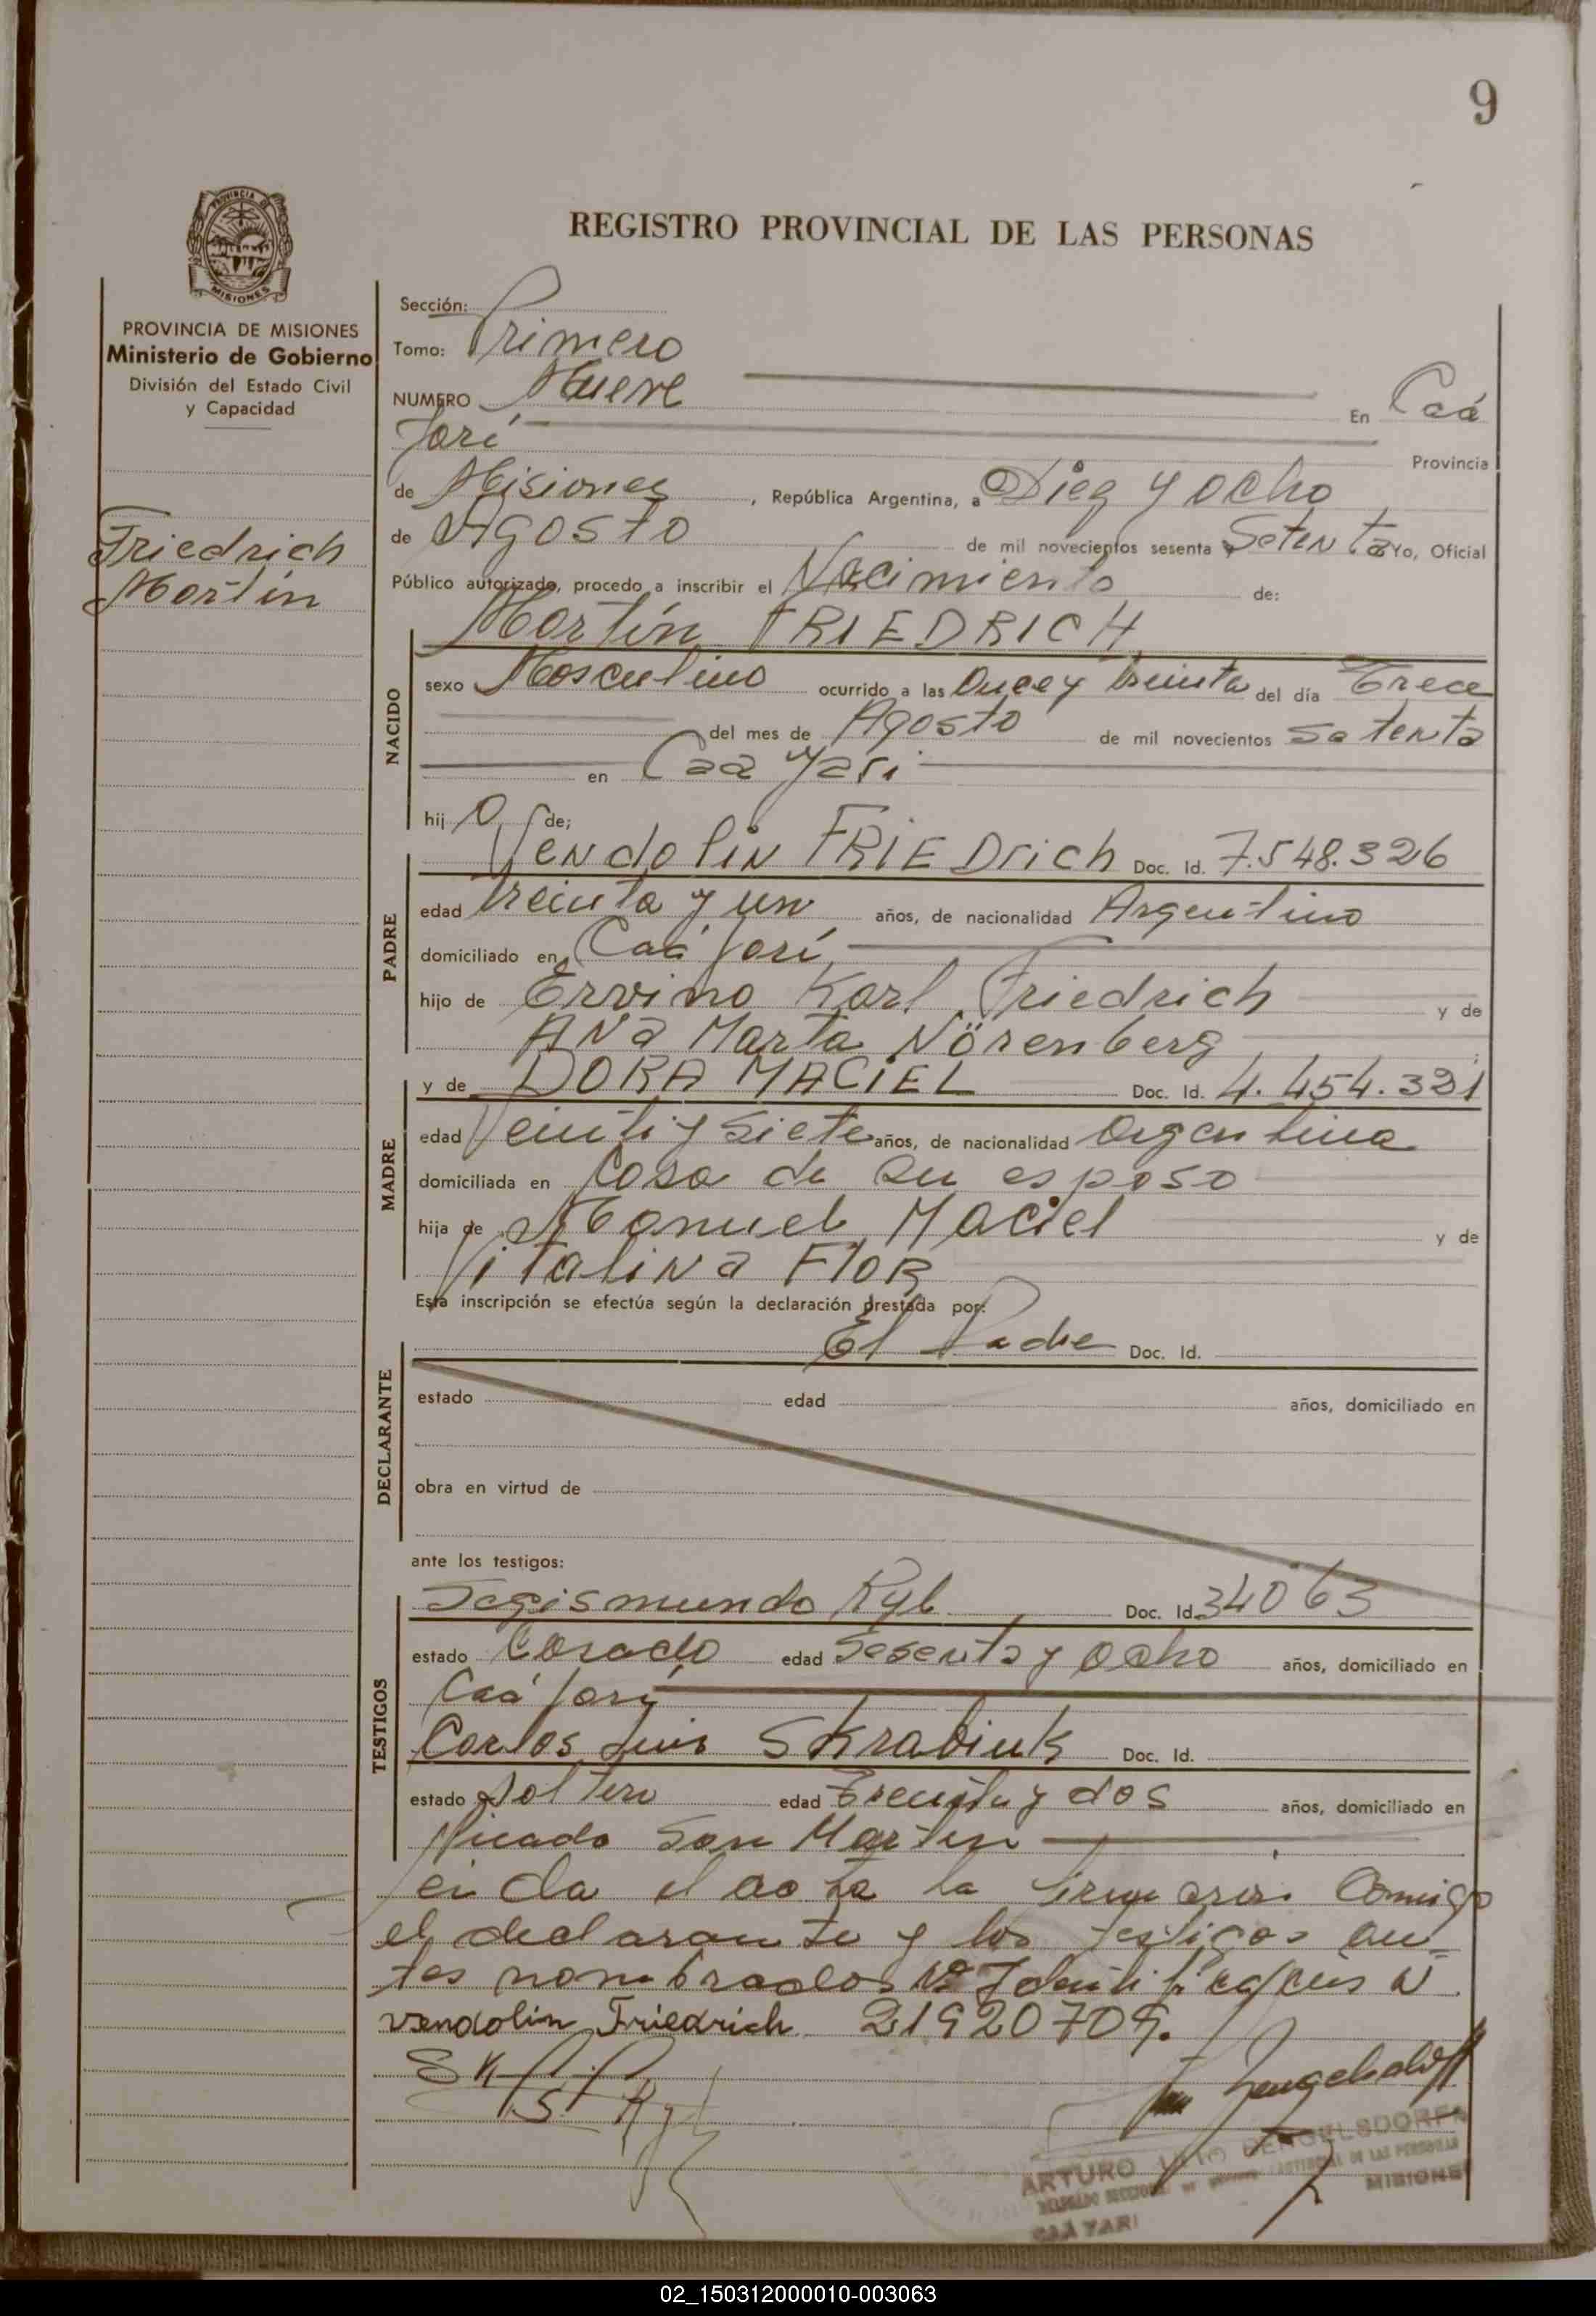 9
PROVINCIA DE
MISIONES
REGISTRO PROVINCIAL DE LAS PERSONAS
PROVINCIA DE MISIONES
Ministerio de Gobierno
División del Estado Civil
y Capacidad
Friedrich
Martín
Sección:
Tomo: Primero
NUMERO Nueve En Caá
Yarí Provincia
de Misiones, República Argentina, a Diez y ocho
de Agosto de mil novecientos sesenta y Setenta Yo, Oficial
Público autorizado, procedo a inscribir el Nacimiento de:
Martín FRIEDRICH
NACIDO
sexo Masculino ocurrido a las Once y treinta del día Trece
del mes de Agosto de mil novecientos Setenta
en Caá Yarí
hij o de;
PADRE
Vendolin FRIEDrich Doc. Id. 7.548.326
edad treinta y un años, de nacionalidad Argentino
domiciliado en Caá Yarí
hijo de Ervino Karl Friedrich y de
ANa Marta Nörenberg;
MADRE
y de DORA MACIEL Doc. Id. 4.454.321
edad Veinti y Siete años, de nacionalidad Argentina
domiciliada en Casa de su esposo
hija de Manuel Maciel y de
Vitalina Flor
Esta inscripción se efectúa según la declaración prestada por:
DECLARANTE
El Padre Doc. Id.
estado edad años, domiciliado en
obra en virtud de
ante los testigos:
TESTIGOS
Segismundo Ryl Doc. Id. 34063
estado Casado edad Sesenta y Ocho años, domiciliado en
Caá Yarí
Carlos Luis Skrabiuk Doc. Id.
estado Soltero edad Treinta y dos años, domiciliado en
Picada San Martin
Leida el acta la firmaron Comigo
el declarante y los testigos an-
tes nombrados Nº Identificación N
vendolin Friedrich 21920709.
ARTURO
DE LAS PERSONAS
MISIONES
CAÁ YARI
02_150312000010-003063